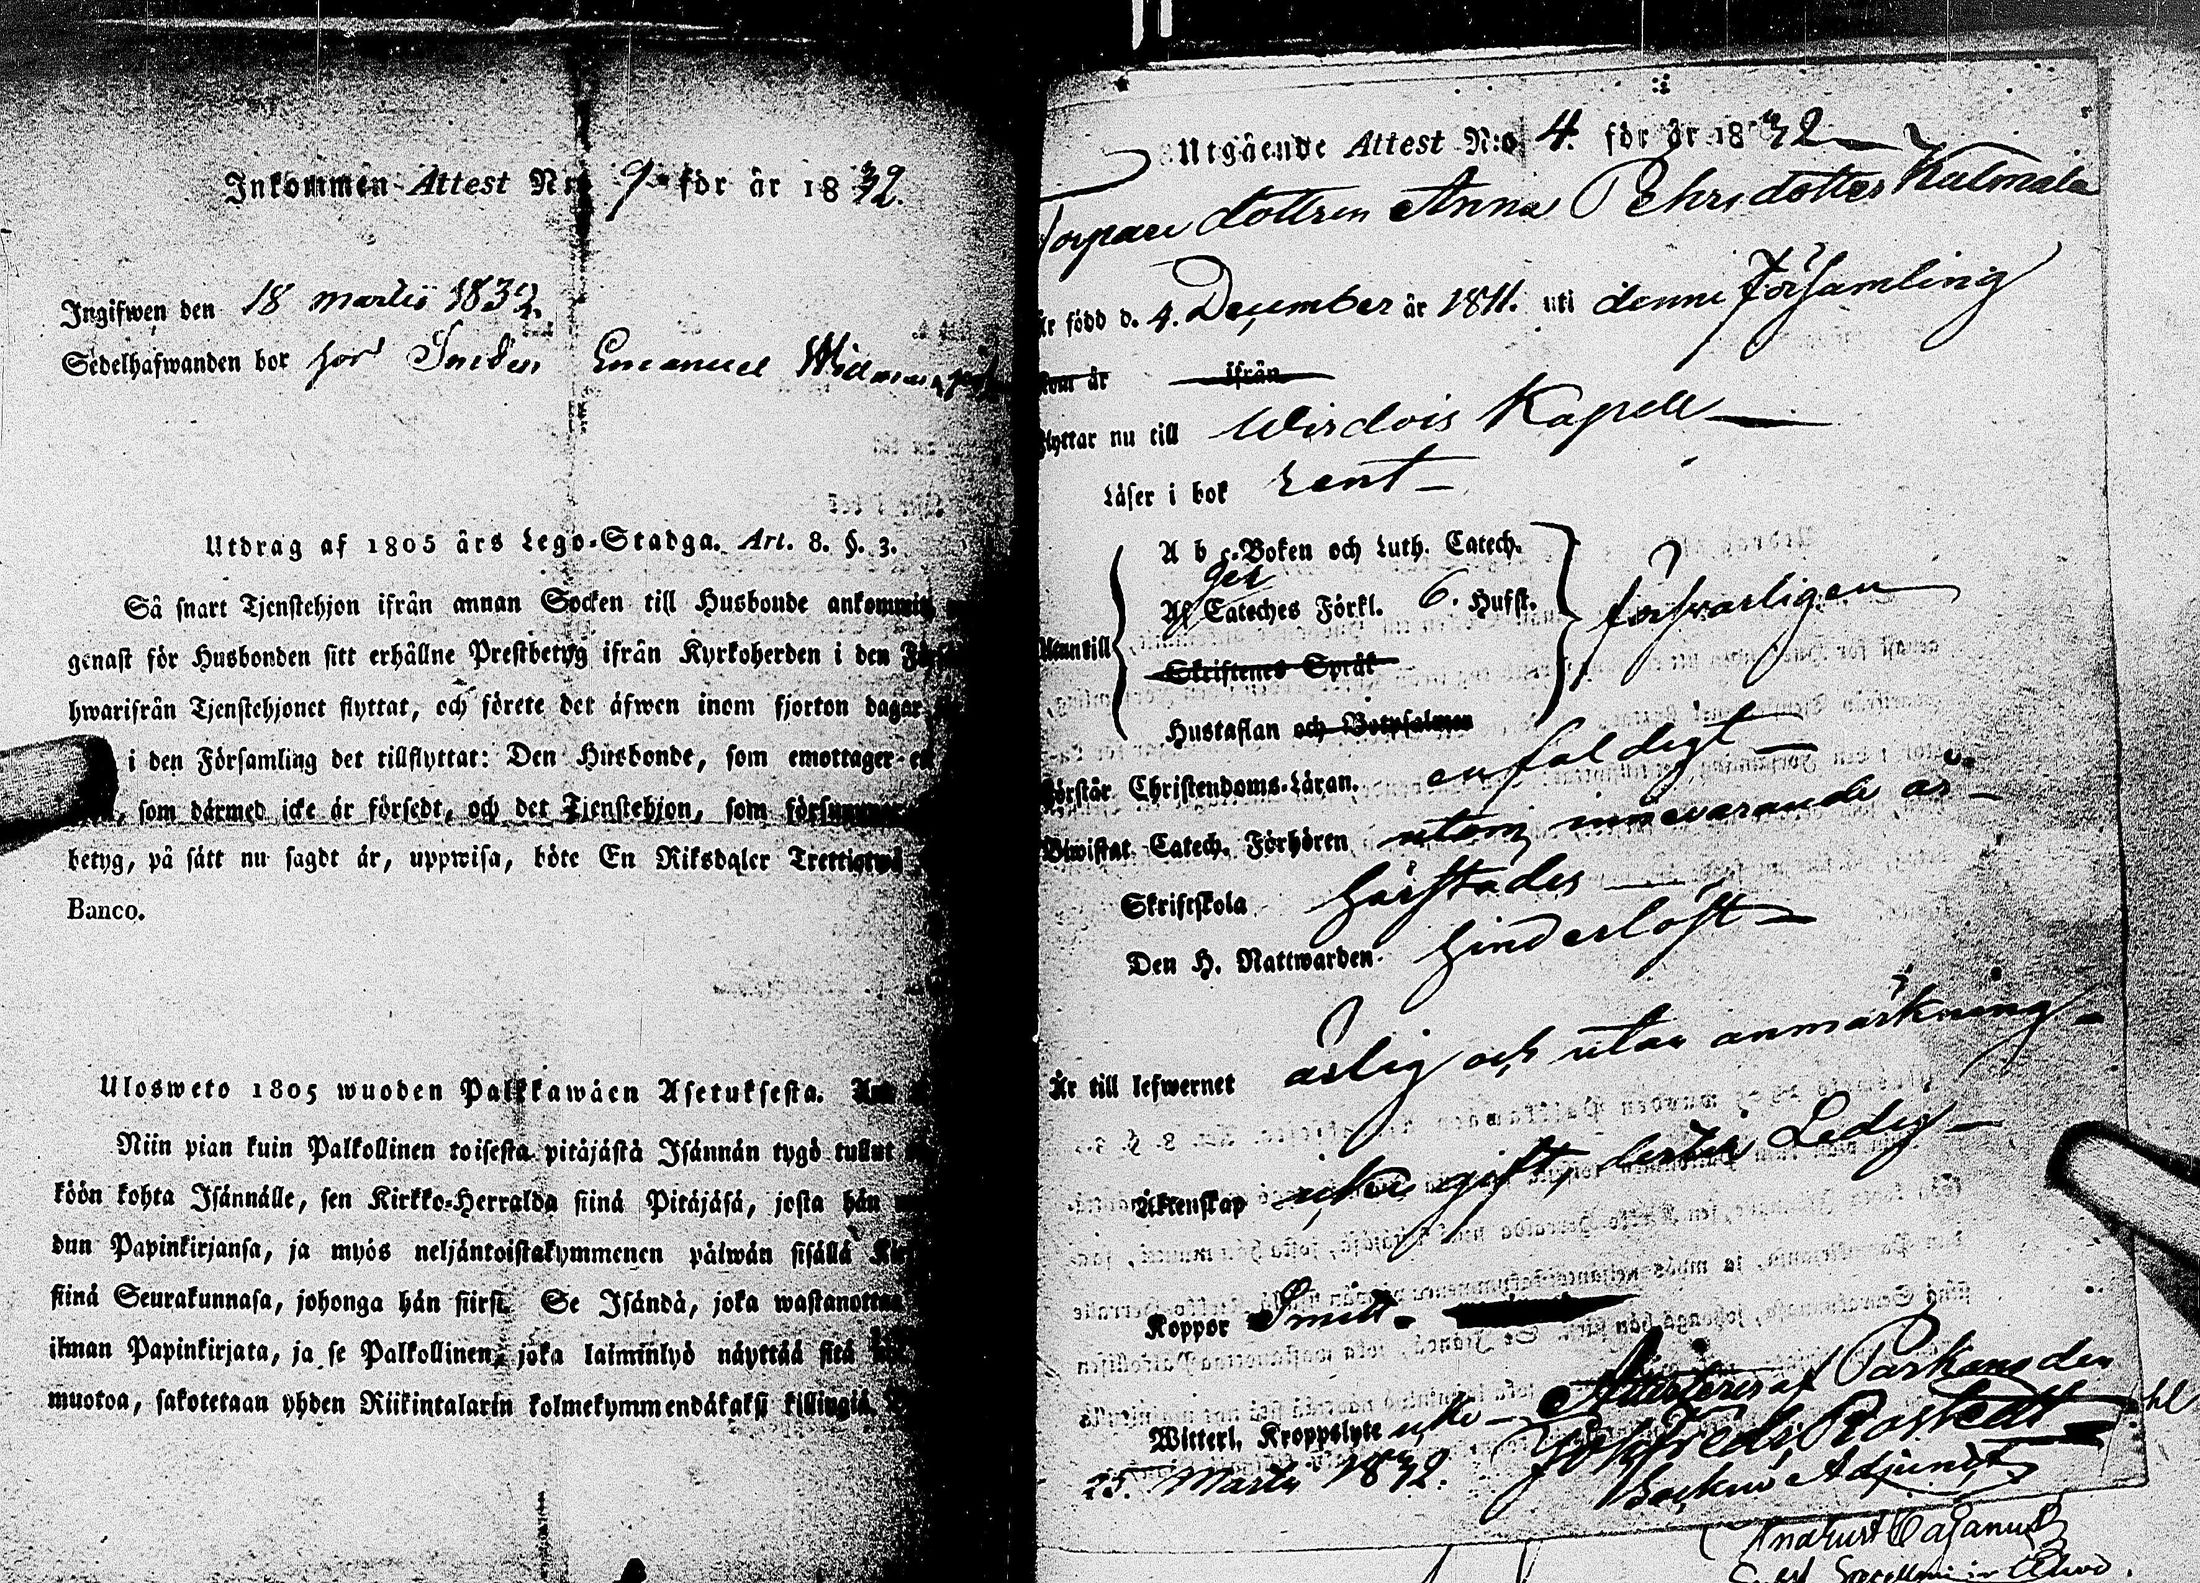 Inkommen Attest N:o 9 för år 1832.
Ingifwen den 18 martii 1832.
Sedelhafwanden bor hos Smeden Emanuel
Utdrag af 1805 års Lego-Stadga. Art. 8. §. 3.
Så snart Tjenstehjon ifrån annan Socken till Husbonde ankommit
genast för Husbonden sitt erhållne Prestbetyg ifrån Kyrkoherden i den
hwarifrån Tjenstehjonet flyttat, och förete det äfwen inom fjorton dagar
i den Församling det tillflyttat: Den Husbonde, som emottager
som därmed icke är försedt, och det Tjenstehjon, som försummar
betyg, på sätt nu sagdt är, uppwisa, böte En Riksdaler Trettiotwå
Banco.
Ulosweto 1805 wuoden Palkkawäen Asetuksesta.
Niin pian kuin Palkollinen toisesta pitäjästä Isännän tygö tullut
köön kohta Isännälle, sen Kirkko-Herralda siinä Pitäjäsä, josta hän
dun Papinkirjansa, ja myös neljäntoistakymmenen päiwän sisällä
siinä Seurakunnasa, johonga hän siirsi. Se Isändä, joka wastanottaa
ilman Papinkirjata, ja se Palkollinen, joka laiminlyö näyttää sitä
muotoa, sakotetaan yhden Riikintalarin kolmekymmendäkaksi killingiä
Utgående Attest N:o 4. för år 1832
Torpare dottren Anna Pehrsdotter Kulmala
Är född d. 4. December år 1811. uti denne Församling
kom år ifrån
Flyttar nu till Wirdois Kapell
Läser i bok rent
A b c-Boken och Luth. Catech.
Af Cateches Förkl. 6. Hufst. försvarligen
Skriftenes Språk
Hustaflan och Botpsalmen
Förstår Christendoms-Läran. enfaldigt
Biwistat Catech. Förhören utom innevarande år
Skriftskola
Den H. Nattwarden hinderlöst
Är till lefwernet ärlig och utan anmärkning
Äktenskap icke gift, Ledig
Koppor
Witterl. Kroppslyte icke
Attesteras af Parkano den
25. Martii 1832.
Sockne Adjunct